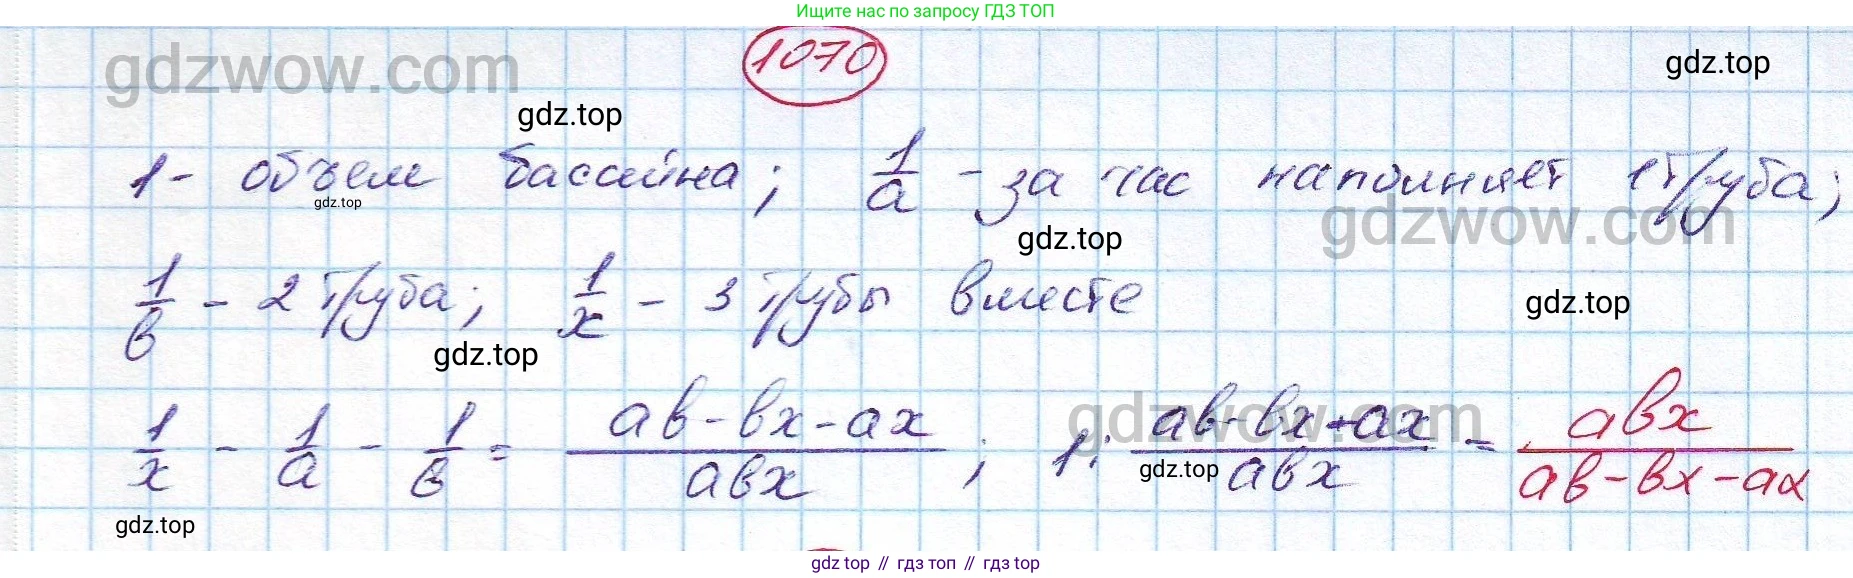 Ищите нас по запросу ГДЗ ТОП
1070
gdzwow.com
gdz.top
gdz.top
1 - объем бассейна; 1/a - за час наполняет 1 труба;
gdz.top
gdzwow.com
gdz.top
1/в - 2 труба; 1/x - 3 трубы вместе
gdz.top
gdz.top
1/x - 1/a - 1/в = (ав - вx - аx)/(авx); 1 : (ав - вx - аx)/(авx) = авx/(ав - вx - аx)
gdzwow.com
gdz.top
gdz.top
gdz top // гдз топ // гдз top